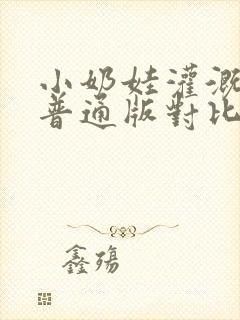 小奶娃灌溉
普通版對比
鑫殤